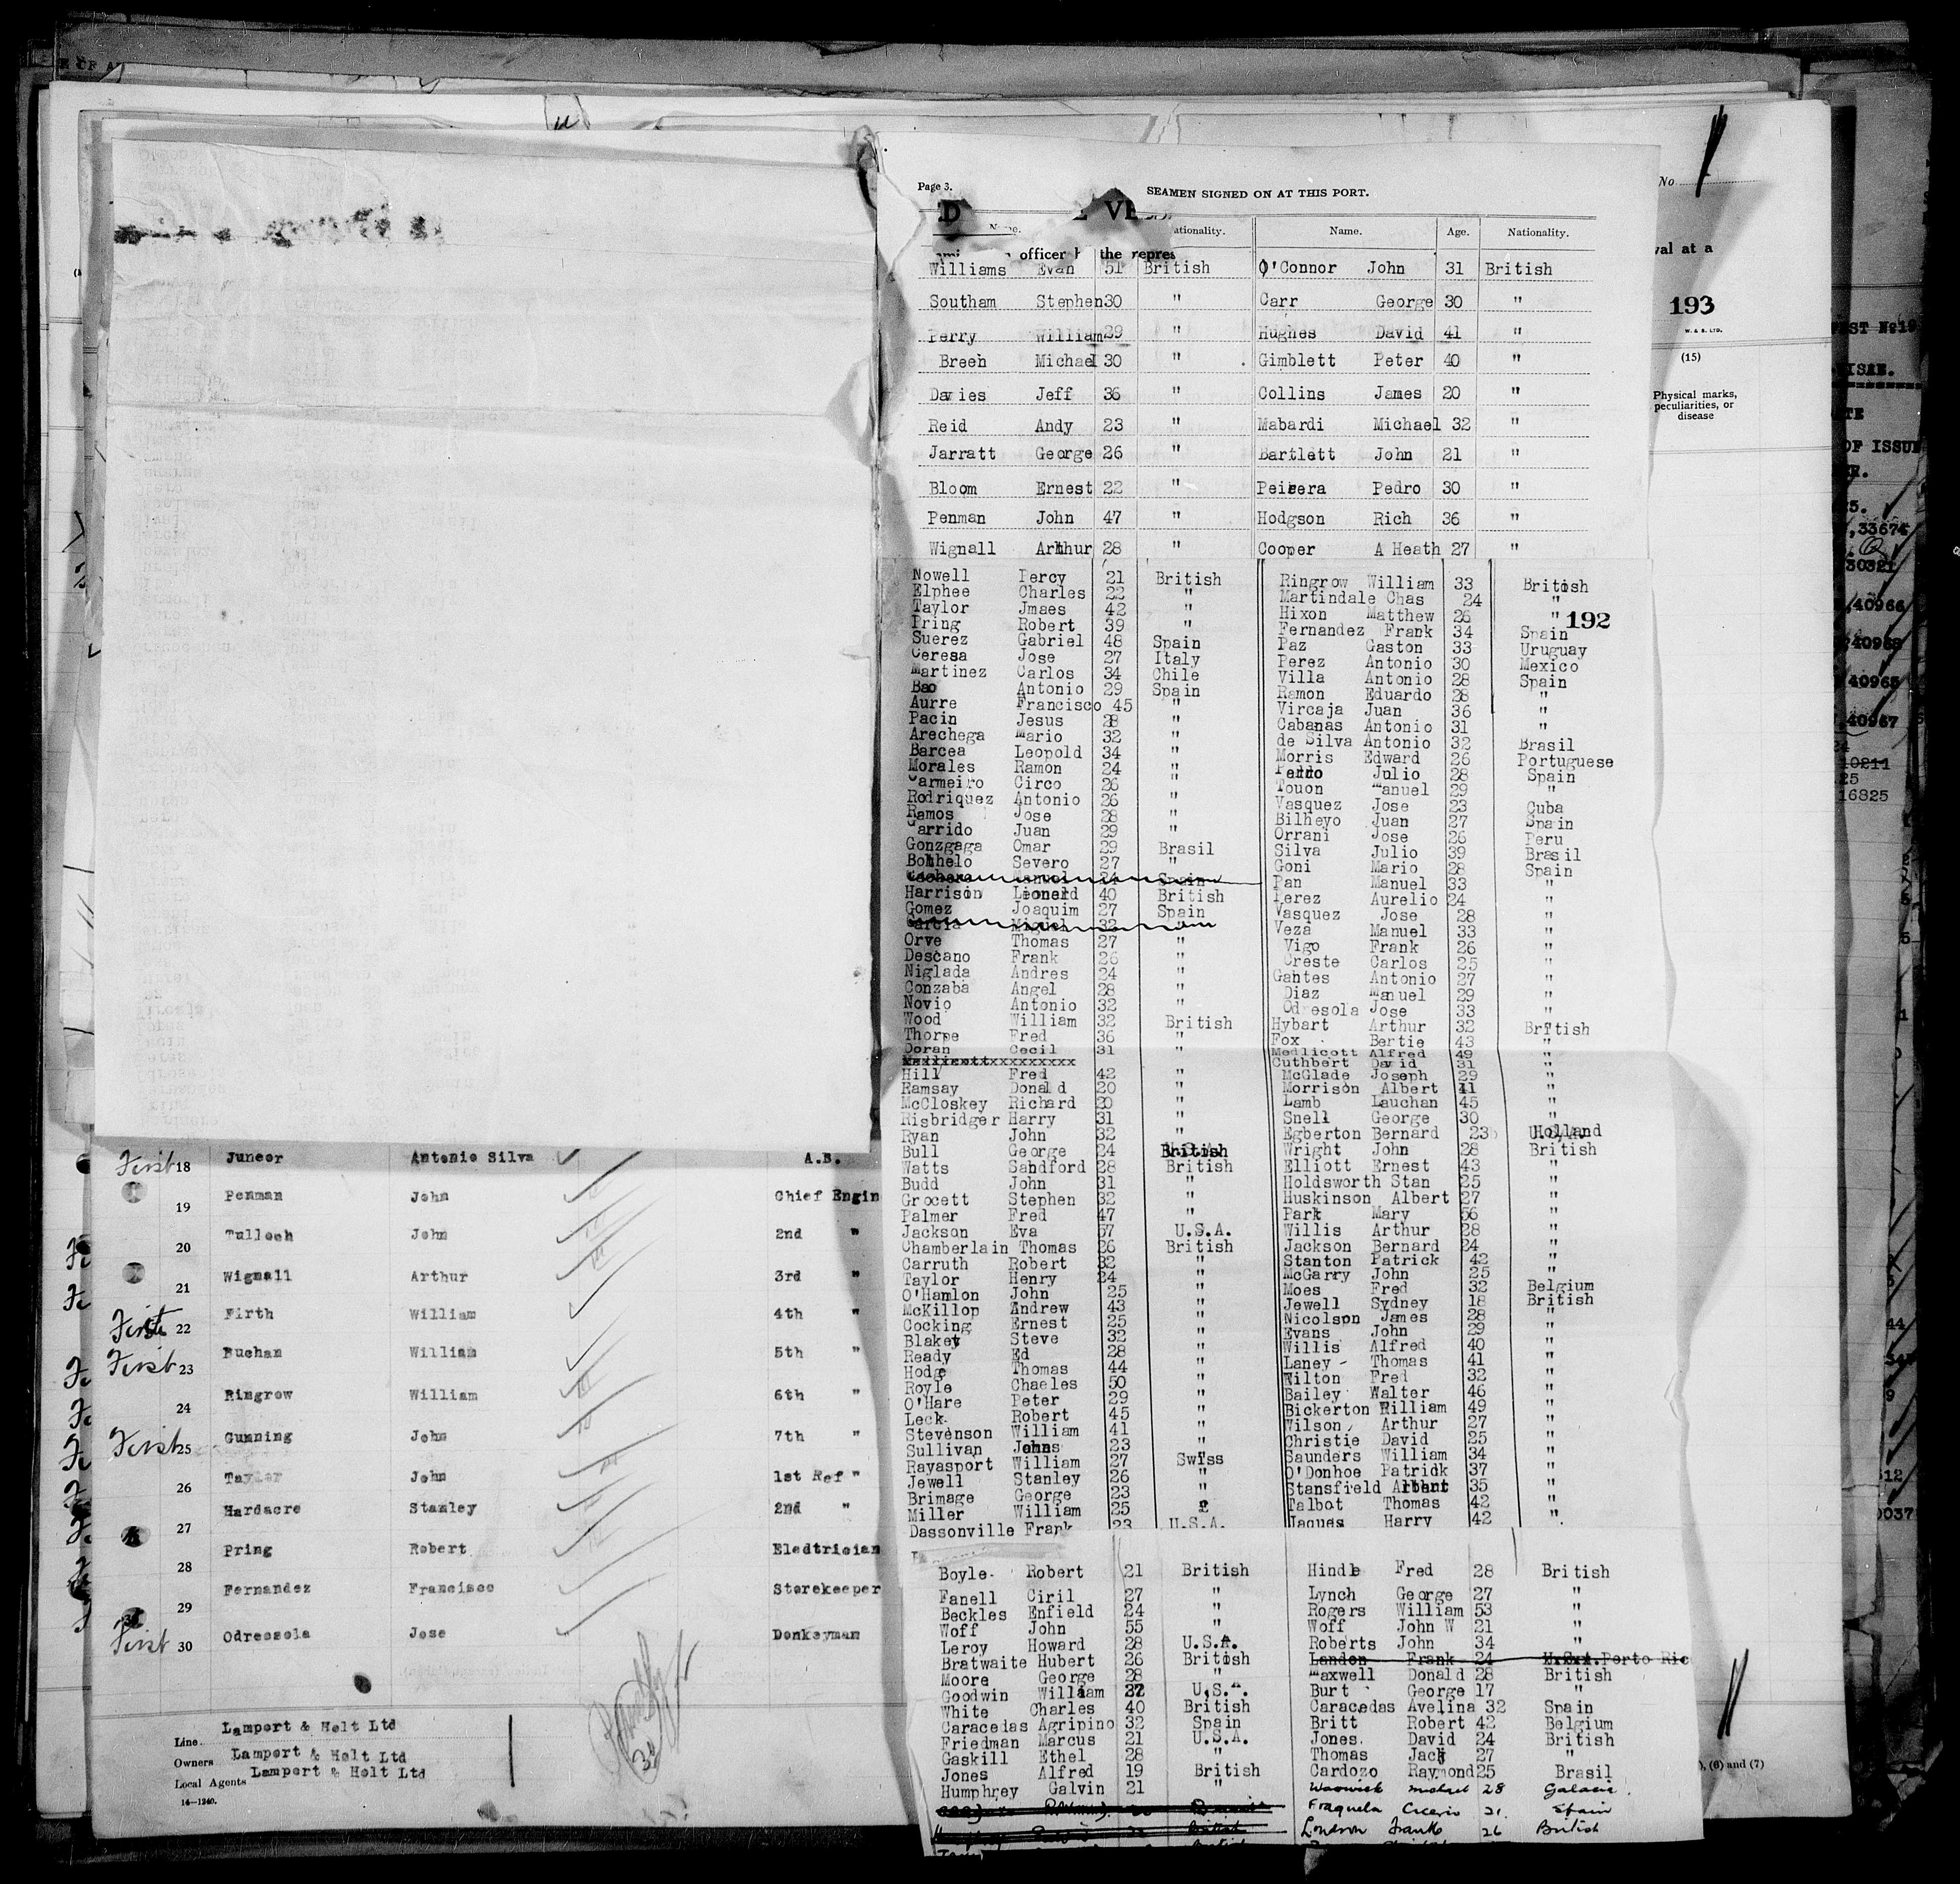 Page 3.
SEAMEN SIGNED ON AT THIS PORT.
No
Nationality. Name. Age. Nationality.
officer the repres
val at a
Williams Evan 51 British O'Connor John 31 British
Southam Stephen 30 " Carr George 30 "
193
W. & S. LTD.
Perry William 29 " Hughes David 41 "
Breen Michael 30 " Gimblett Peter 40 "
(15)
Davies Jeff 36 " Collins James 20 "
Physical marks,
peculiarities, or
disease
Reid Andy 23 " Mabardi Michael 32 "
Jarratt George 26 " Bartlett John 21 "
Bloom Ernest 22 " Peisera Pedro 30 "
Penman John 47 " Hodgson Rich 36 "
Wignall Arthur 28 " Cooper A Heath 27 "
Nowell Percy 21 British Ringrow William 33 British
Elphee Charles 22 " Martindale Chas 24 "
Taylor Jmaes 42 " Hixon Matthew 26 "
192
Pring Robert 39 " Fernandez Frank 34 Spain
Suerez Gabriel 48 Spain Paz Gaston 33 Uruguay
Ceresa Jose 27 Italy Perez Antonio 30 Mexico
Martinez Carlos 34 Chile Villa Antonio 28 Spain
Bao Antonio 29 Spain Ramon Eduardo 28 "
Aurre Francisco 45 " Vircaja Juan 36 "
Pacin Jesus 28 " Cabanas Antonio 31 "
Arechega Mario 32 " de Silva Antonio 32 Brasil
Barcea Leopold 34 " Morris Edward 26 Portuguese
Morales Ramon 24 " Julio 28 Spain
Carmeiro Circo 26 " Touon Manuel 29 "
Rodriquez Antonio 26 " Vasquez Jose 23 Cuba
Ramos Jose 28 " Bilheyo Juan 27 Spain
Garrido Juan 29 " Orrani Jose 26 Peru
Gonzgaga Omar 29 Brasil Silva Julio 39 Brasil
Bohhelo Severo 27 " Goni Mario 28 Spain
Manuel 24 Spain Pan Manuel 33 "
Harrison Lionard 40 British Perez Aurelio 24 "
Gomez Joaquim 27 Spain Vasquez Jose 28 "
Garcia Miguel 32 " Veza Manuel 33 "
Orve Thomas 27 " Vigo Frank 26 "
Descano Frank 26 " Creste Carlos 25 "
Niglada Andres 24 " Gantes Antonio 27 "
Conzaba Angel 28 " Diaz Manuel 29 "
Novio Antonio 32 " Odresola Jose 33 "
Wood William 32 British Hybart Arthur 32 British
Thorpe Fred 36 " Fox Bertie 43 "
Doran Cecil 31 " Medlicott Alfred 49 "
Cuthbert David 31 "
Hill Fred 42 " McGlade Joseph 29 "
Ramsay Donald 20 " Morrison Albert 41 "
McCloskey Richard 20 " Lamb Lauchan 45 "
Risbridger Harry 31 " Snell George 30 "
Ryan John 32 " Egberton Bernard 23 Holland
Bull George 24 British Wright John 28 British
Watts Sandford 28 British Elliott Ernest 43 "
Budd John 31 " Holdsworth Stan 25 "
Grocett Stephen 32 " Huskinson Albert 27 "
Palmer Fred 47 " Park Mary 56 "
Jackson Eva 57 U.S.A. Willis Arthur 28 "
Chamberlain Thomas 26 British Jackson Bernard 24 "
Carruth Robert 32 " Stanton Patrick 42 "
Taylor Henry 24 " McGarry John 25 "
O'Hamlon John 25 " Moes Fred 32 Belgium
McKillop Andrew 43 " Jewell Sydney 18 British
Cocking Ernest 25 " Nicolson James 28 "
Blakey Steve 32 " Evans John 29 "
Ready Ed 28 " Willis Alfred 40 "
Hodge Thomas 44 " Laney Thomas 41 "
Royle Chaeles 50 " Wilton Fred 32 "
O'Hare Peter 29 " Bailey Walter 46 "
Leck Robert 45 " Bickerton William 49 "
Stevenson William 41 " Wilson Arthur 27 "
Sullivan 23 " Christie David 25 "
Rayasport William 27 Swiss Saunders William 34 "
Jewell Stanley 26 " O'Donhoe Patrick 37 "
Brimage George 23 " Stansfield Albert 35 "
Miller William 25 Talbot Thomas 42 "
Dassonville Frank 23 U.S.A. Jaques Harry 42 "
Boyle Robert 21 British Hindle Fred 28 British
Fanell Ciril 27 " Lynch George 27 "
Beckles Enfield 24 " Rogers William 53 "
Woff John 55 " Woff John W 21 "
Leroy Howard 28 U.S.A. Roberts John 34 "
Bratwaite Hubert 26 British Landon Frank 24 Porto Ric
Moore George 28 " Maxwell Donald 28 British
Goodwin William 37 U.S.A. Burt George 17 "
White Charles 40 British Caracedas Avelina 32 Spain
Caracedas Agripino 32 Spain Britt Robert 42 Belgium
Friedman Marcus 21 U.S.A. Jones. David 24 British
Gaskill Ethel 28 " Thomas Jack 27 "
Jones Alfred 19 British Cardozo Raymond 25 Brasil
Humphrey Galvin 21 " Warwick Michael 28 Galacia.
Fraquela Cicerio 21. Spain
London Frank 26 British
First 18 Juncor Antonio Silva A.B.
19 Penman John Chief Engin
20 Tulloch John 2nd "
21 Wignall Arthur 3rd "
First 22 Firth William 4th "
First 23 Buchan William 5th "
24 Ringrow William 6th "
First 25 Gunning John 7th "
26 Taylor John 1st Ref "
27 Hardacre Stanley 2nd "
28 Pring Robert Eledtrician
29 Fernandez Francisco Storekeeper
First 30 Odressola Jose Donkeyman
Line. Lamport & Holt Ltd
Owners Lamport & Holt Ltd
Local Agents Lamport & Holt Ltd
14—1240.
30
), (6) and (7)
OF ISSUE
,33674
30321
,40966
40968
40965
40967
10211
25
16825